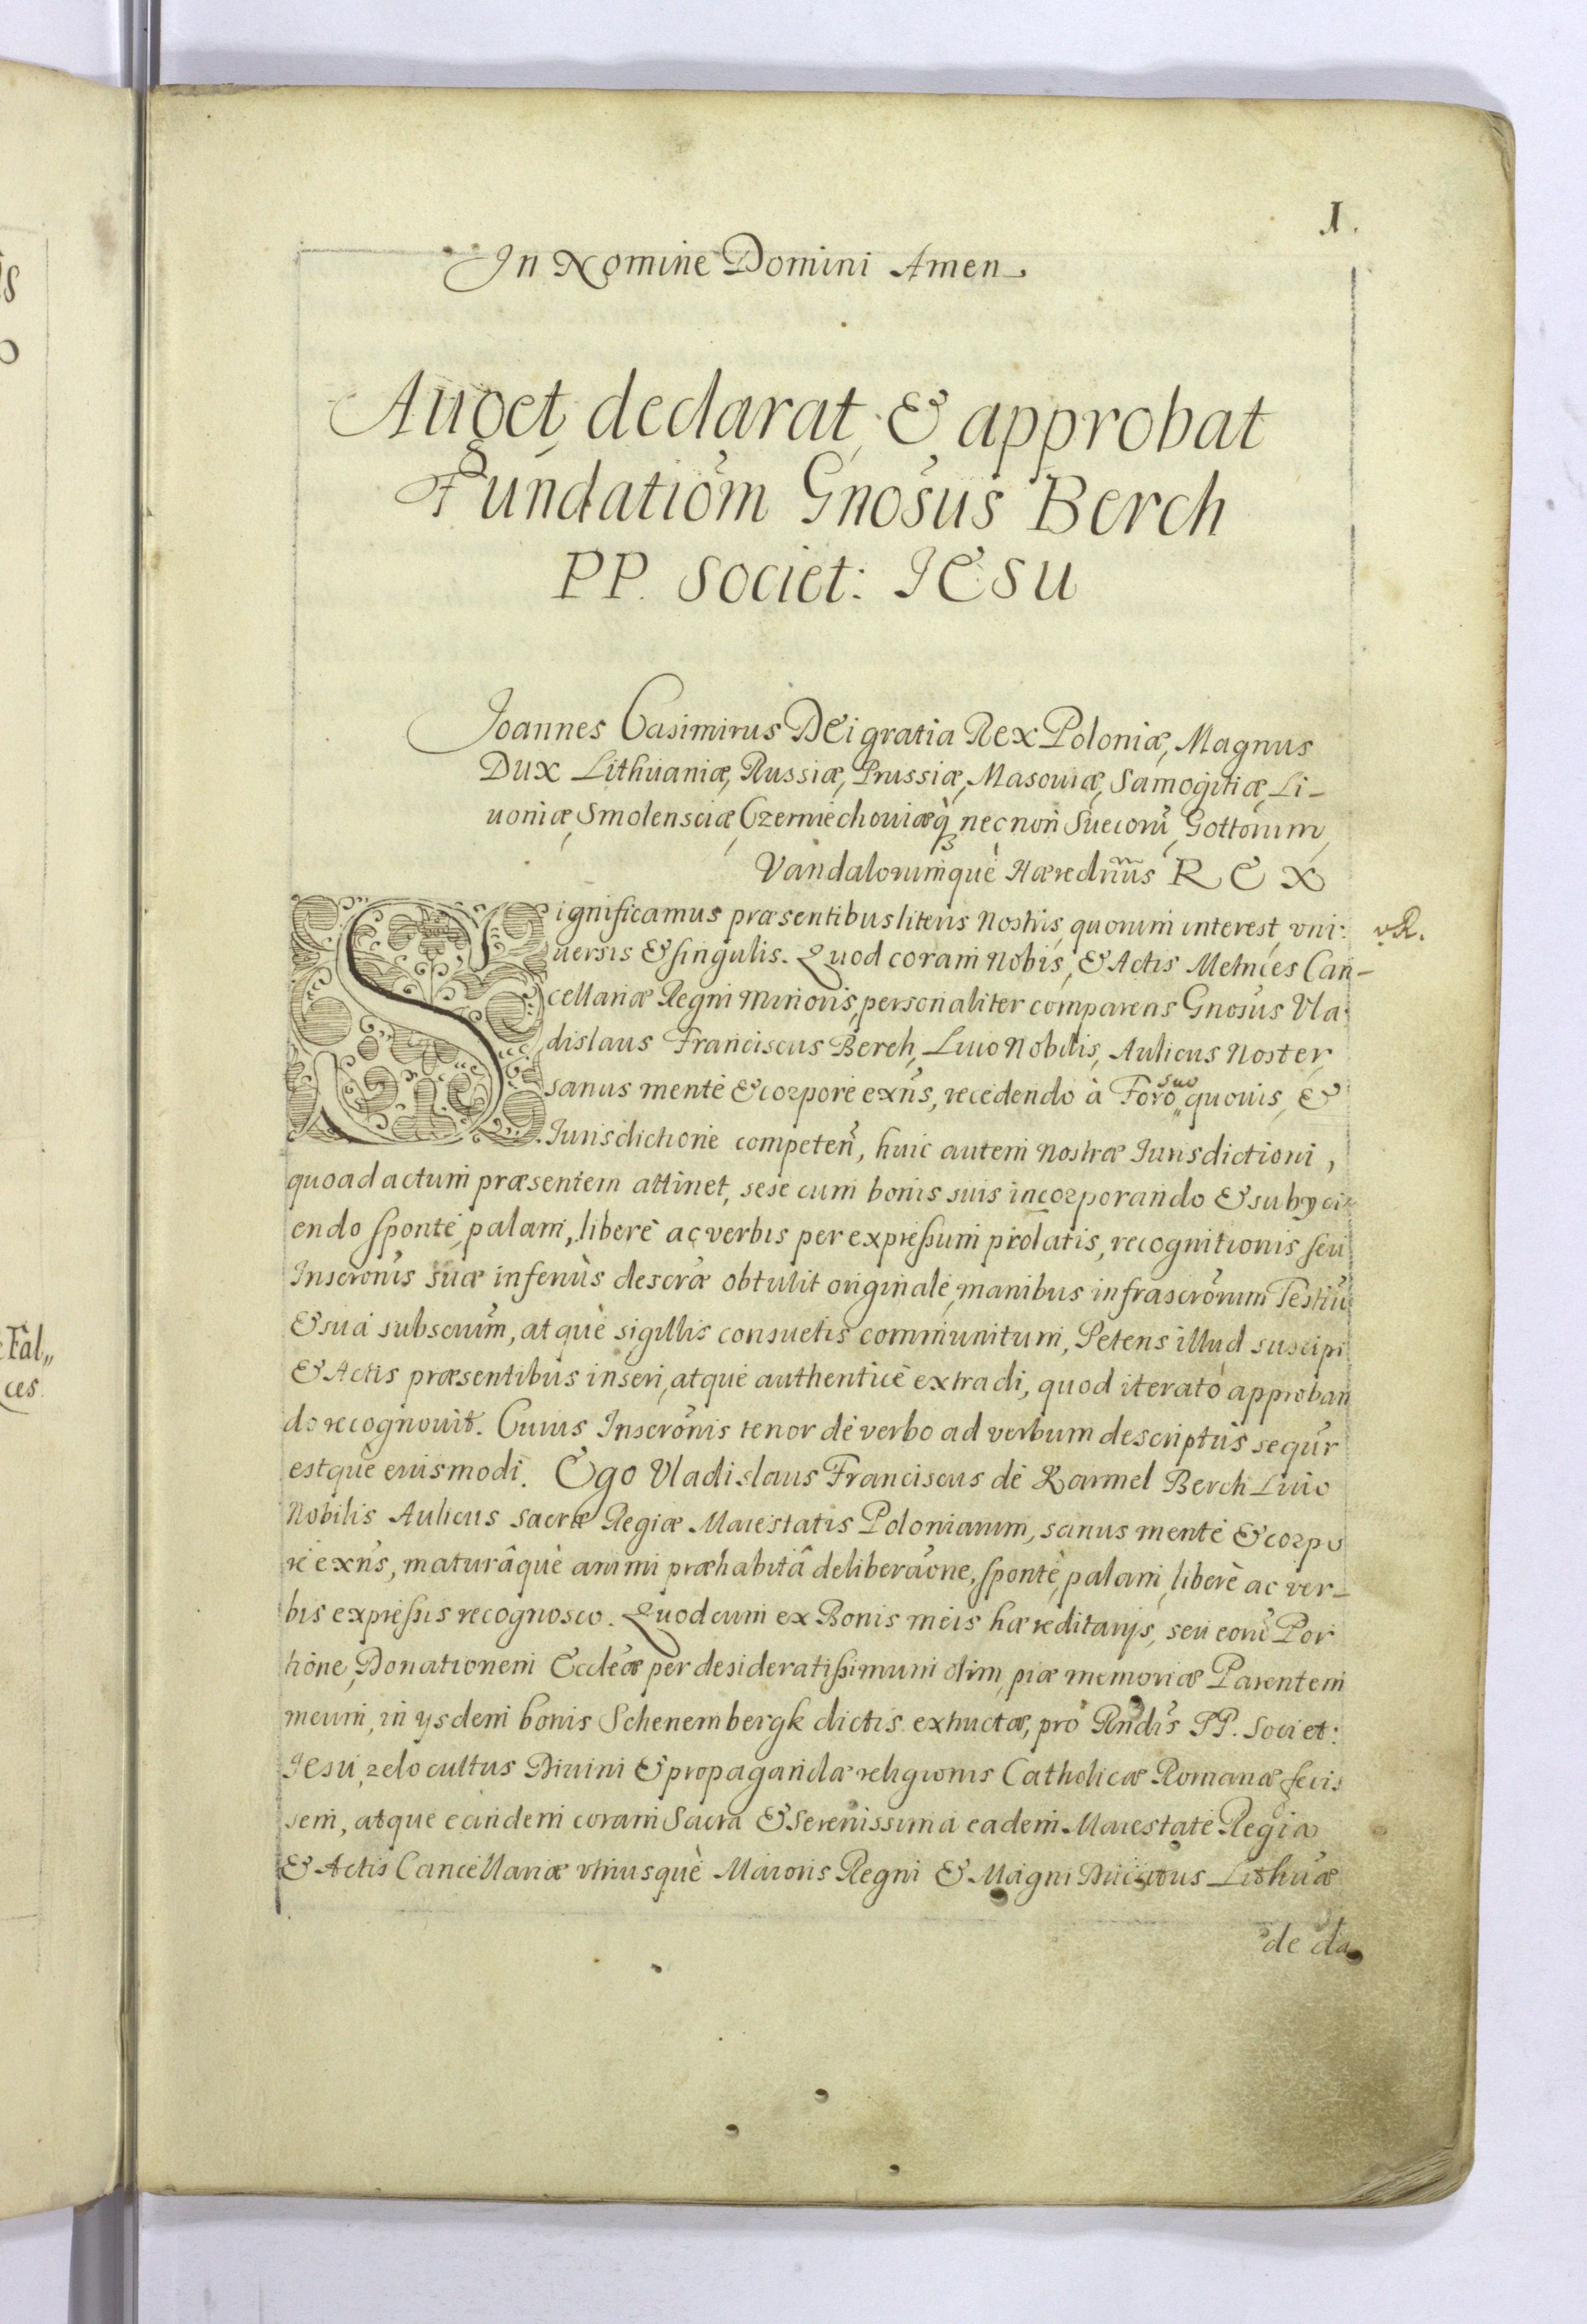 1.
In Nomine Domini Amen
Auget, declarat, & approbat
Fundatiom̃ Gnosus Berch
PP. Societ: IESU
Joannes Casimirus DEi gratia Rex Poloniæ, Magnus
Dux Lithuaniæ, Russiæ, Prussiæ, Masouiæ, Samogitiæ, Li-
uoniæ, Smolensciæ, Czerniechouiæq̀ nec non Suecorũ, Gottorum,
Vandalorumquè Hæredñus REX
Significamus præsentibus literis Nostris, quorum interest, vni:
uersis & singulis. Quod coram Nobis, & Actis Metrices Can-
cellariæ Regni Minoris, personaliter comparens Gnosus Vla:
dislaus Franciscus Berch, Liuo Nobilis, Aulicus Noster,
suo
sanus mente & corpore exñs, recedendo à Foro quouis, &
Iurisdictione competeñ, huic autem Nostræ Iurisdictioni,
quoad actum præsentem attinet, sese cum bonis suis incorporando & subyci-
endo sponte, palam, libere ac verbis per expressum prolatis, recognitionis seu
Inscronis suæ inferiùs descræ obtulit originale, manibus infrascrorum Testiũ
& sua subscrium, atquè sigillis consuetis communitum, Petens illud suscipi
& Actis præsentibus inseri, atque authentice extradi, quod iterato approban
do recognouit. Cuius Inscronis tenor de verbo ad verbum descriptus sequr
estque eiusmodi. Ego Vladislaus Franciscus de Karmel Berch Liuo
Nobilis Aulicus Sacræ Regiæ Maiestatis Poloniarum, sanus mente & corpo
re exñs, maturâquè animi præhabitâ deliberaone, sponte, palam, liberè ac ver-
bis expressis recognosco. Quod cum ex Bonis meis hæreditarijs, seu eorũ Por
tione, Donationem Eccleæ per desideratissimum olim, piæ memoriæ Parentem
meum, in ysdem bonis Schenembergk dictis extructæ, pro Rndis PP. Societ:
IEsu, zelo cultus Diuini & propagandæ religionis Catholicæ Romanæ fecis
sem, atque eandem coram Sacra & Serenissima eadem Maiestate Regia
& Actis Cancellariæ vtriusquè Maioris Regni & Magni Ducatus Lithuæ
de da